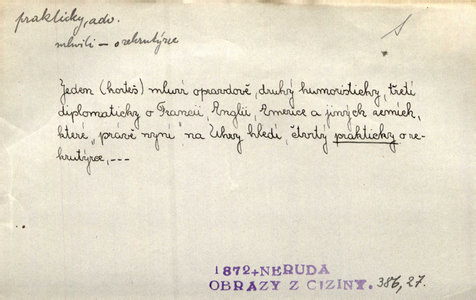 prakticky, adv.
mluvili – o rekrutýrce
Jeden (korteš) mluví opravdově, druhý humoristicky, třetí
diplomaticky o Francii, Anglii, Americe a jiných zemích,
které „právě nyní" na Uhry hledí, čtvrtý prakticky o re-
krutýrce, ---
1872+NERUDA
OBRAZY Z CIZINY. 386,27.